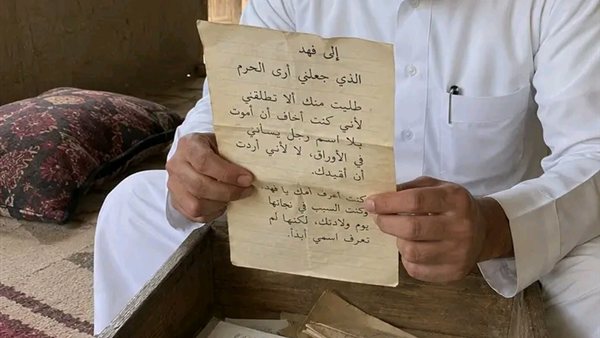 إلى فهد
الذي جعلني أرى الحرم
طلبت منك ألا تطلقني
لأني كنت أخاف أن أموت
بلا اسم رجل يسأني
في الأوراق، لا لأني أردت
أن أقيدك.
كنت أعرف أمك يا فهد.
وكنت السبب في نجاتها
يوم ولادتك. لكنها لم
تعرف اسمي أبداً.